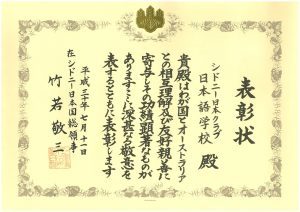 表彰状
シドニー日本クラブ
日本語学校 殿
貴殿はわが国とオーストラリア
との相互理解及び友好親善に
寄与しその功績顕著なものが
ありますここに深甚なる敬意を
表するとともにこれを表彰します
平成三十年七月十一日
在シドニー日本国総領事
竹若敬三